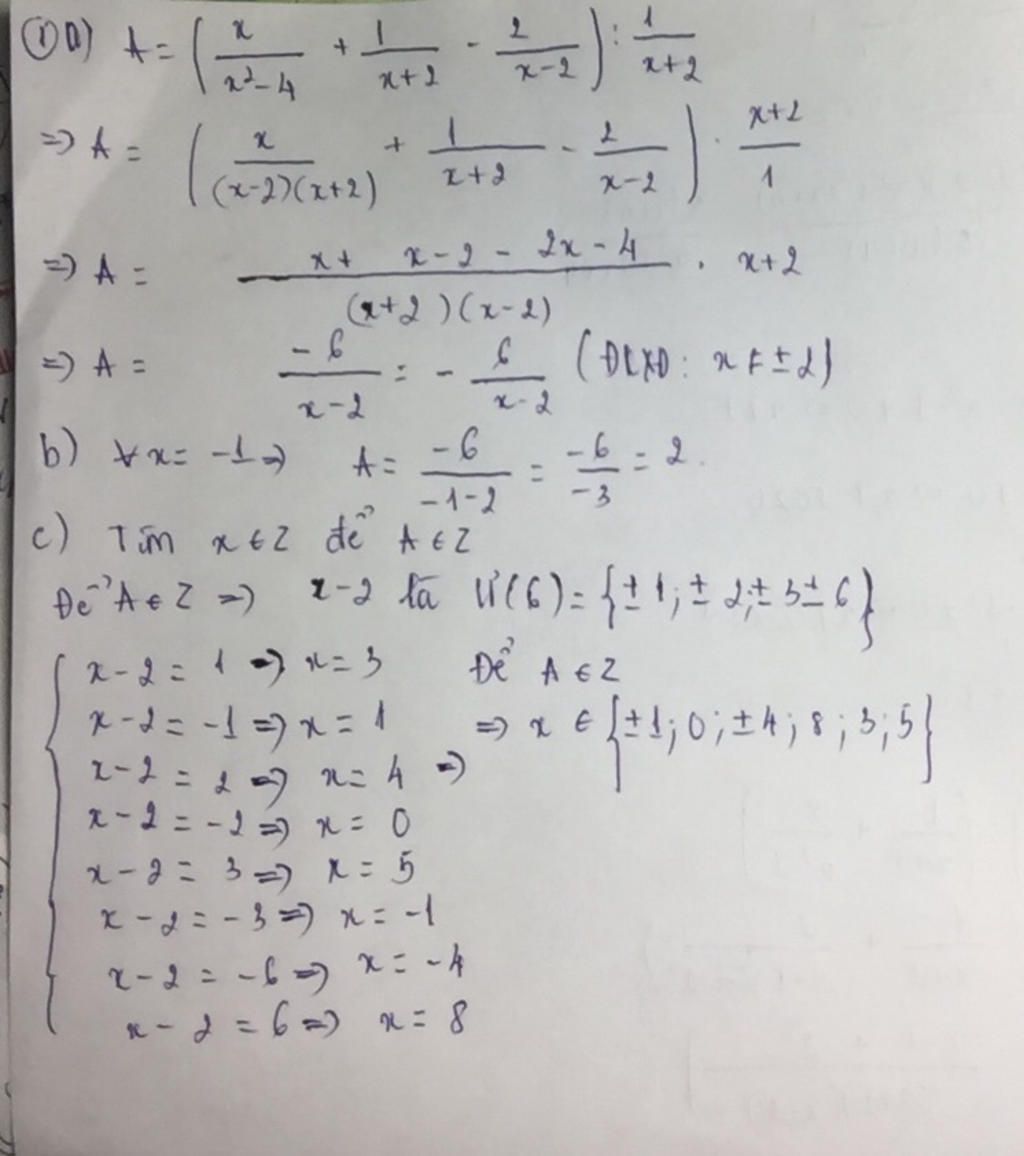 ① a) A = ( x/(x²-4) + 1/(x+2) - 2/(x-2) ) : 1/(x+2)
=> A = ( x/((x-2)(x+2)) + 1/(x+2) - 2/(x-2) ) . (x+2)/1
=> A = (x + x-2 - 2x-4)/((x+2)(x-2)) . x+2
=> A = -6/(x-2) = - 6/(x-2) (ĐKXĐ: x ≠ ±2)
b) ∀ x = -1 => A = -6/(-1-2) = -6/-3 = 2.
c) Tìm x ∈ Z để A ∈ Z
Để A ∈ Z => x-2 là Ư(6) = {±1; ±2; ±3 ±6}
x-2 = 1 => x = 3 Để A ∈ Z
x-2 = -1 => x = 1 => x ∈ {±1; 0; ±4; 8; 3; 5}
x-2 = 2 => x = 4 =>
x-2 = -2 => x = 0
x-2 = 3 => x = 5
x-2 = -3 => x = -1
x-2 = -6 => x = -4
x-2 = 6 => x = 8